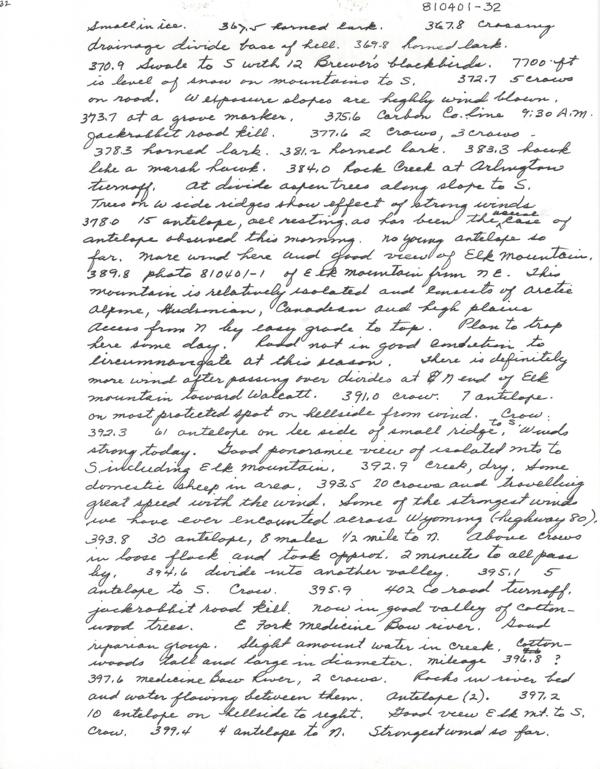 32
810401-32
Small in ice. 367.5 horned lark. 367.8 Crossing
drainage divide base of hill. 369.8 horned lark.
370.9 Swale to S with 12 Brewer's blackbirds. 7700-ft
is level of snow on mountains to S. 372.7 5 crows
on road. W exposure slopes are highly wind blown.
373.7 at a grave marker. 375.6 Carbon Co. line 9:30 A.M.
Jackrabbit road kill. 377.6 2 crows, 3 crows -
378.3 horned lark. 381.2 horned lark. 383.3 hawk
like a marsh hawk. 384.0 Rock Creek at Arlington
turnoff. At divide aspen trees along slope to S.
Trees on W side ridges show effect of strong winds
378.0 15 antelope, all resting, as has been the usual case of
antelope observed this morning. no young antelope so
far. More wind here and good view of Elk Mountain.
389.8 photo 810401-1 of Elk Mountain from NE. This
mountain is relatively isolated and consists of arctic
alpine, Hudsonian, Canadean and high plains
Access from N by easy grade to top. Plan to trap
here some day. Road not in good condition to
circumnavigate at this season. There is definitely
more wind after passing over divides at N end of Elk
mountain toward Walcott. 391.0 crow. 7 antelope.
on most protected spot on hillside from wind. Crow.
392.3 61 antelope on lee side of small ridge, to S. Winds
strong today. Good panoramic view of isolated mts to
S including Elk Mountain. 392.9 creek, dry. Some
domestic sheep in area. 393.5 20 crows and travelling
great speed with the wind. Some of the strongest winds
we have ever encounted across Wyoming (highway 80).
393.8 30 antelope, 8 males 1/2 mile to N. Above crows
in loose flock and took approx. 2 minute to all pass
by. 394.6 divide into another valley. 395.1 5
antelope to S. Crow. 395.9 402 Co road turnoff.
jackrabbit road kill. now in good valley of cotton-
wood trees. E Fork Medicine Bow river. Good
riparian group. Slight amount water in creek. Cotton-
woods tall and large in diameter. mileage 396.8 ?
397.6 medicine Bow River, 2 crows. Rocks in river bed
and water flowing between them. Antelope (2). 397.2
10 antelope on hillside to right. Good view Elk mt. to S.
Crow. 399.4 4 antelope to N. Strongest wind so far.